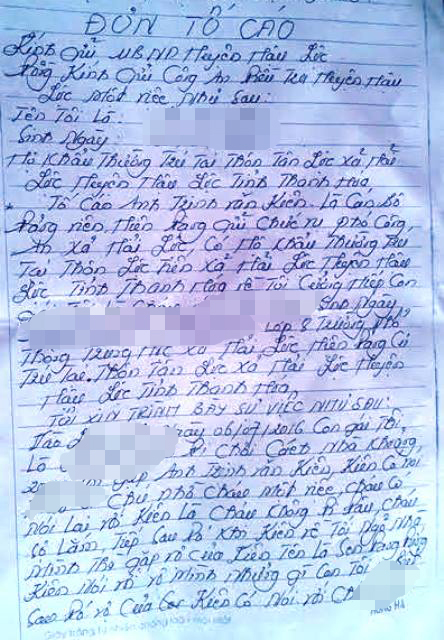 ĐƠN TỐ CÁO
Kính Gửi UBND Huyện Hậu Lộc
Đồng Kính Gửi Công An Điều Tra Huyện Hậu
Lộc một việc Như Sau:
Tên Tôi Là
Sinh Ngày
Hộ Khẩu Thường Trú Tại Thôn Tân Lộc xã Hải
Lộc Huyện Hậu Lộc Tỉnh Thanh Hoa,
Tố Cáo Anh Trịnh văn Kiên. Là Cán Bộ
Đảng viên, Hiện Đang Giữ Chức vụ Phó Công
An xã Hải Lộc, Có Hộ Khẩu Thường Trú
Tại Thôn Lộc Tiên xã Hải Lộc Huyện Hậu
Lộc Tỉnh Thanh Hoa về Tội Cưỡng Hiếp Con
Sinh Ngày
Lớp 8 Trường Phổ
Thông Trung Học xã Hải Lộc Hiện Đang Cư
Trú Tại Thôn Tân Lộc xã Hải Lộc Huyện
Hậu Lộc Tỉnh Thanh Hoa,
TÔI XIN TRÌNH BÀY SỰ VIỆC NHƯ SAU:
Vào ngày 06/07/2016 Con gái Tôi,
Là Đi Chơi Cách Nhà Khoảng
gặp Anh Trịnh văn Kiên, Kiên Có Nói
Chú Nhờ Cháu Một việc, Cháu Có
Nói Lại với Kiên Là Cháu Không Đi Đâu, Cháu
Sau Đó Khi Kiên về Tới Ngõ Nhà
Mình Thì gặp vợ của Kiên Tên Là Sen Đang Đứng
Kiên Nói với vợ Mình Những gì Con Tôi Biết
Sau Đó vợ Của Kiên Có Nói với